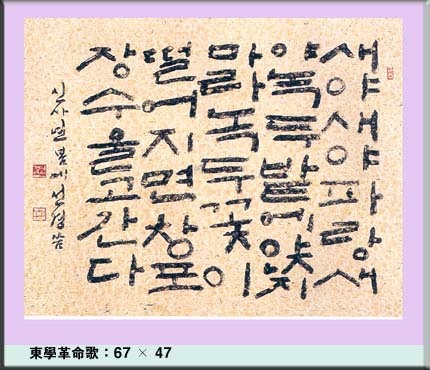 새야새야파랑새
야녹두밭에앉지
마라녹두꽃이
떨어지면창포
장수울고간다
신사년 봄에
東學革命歌 : 67 × 47